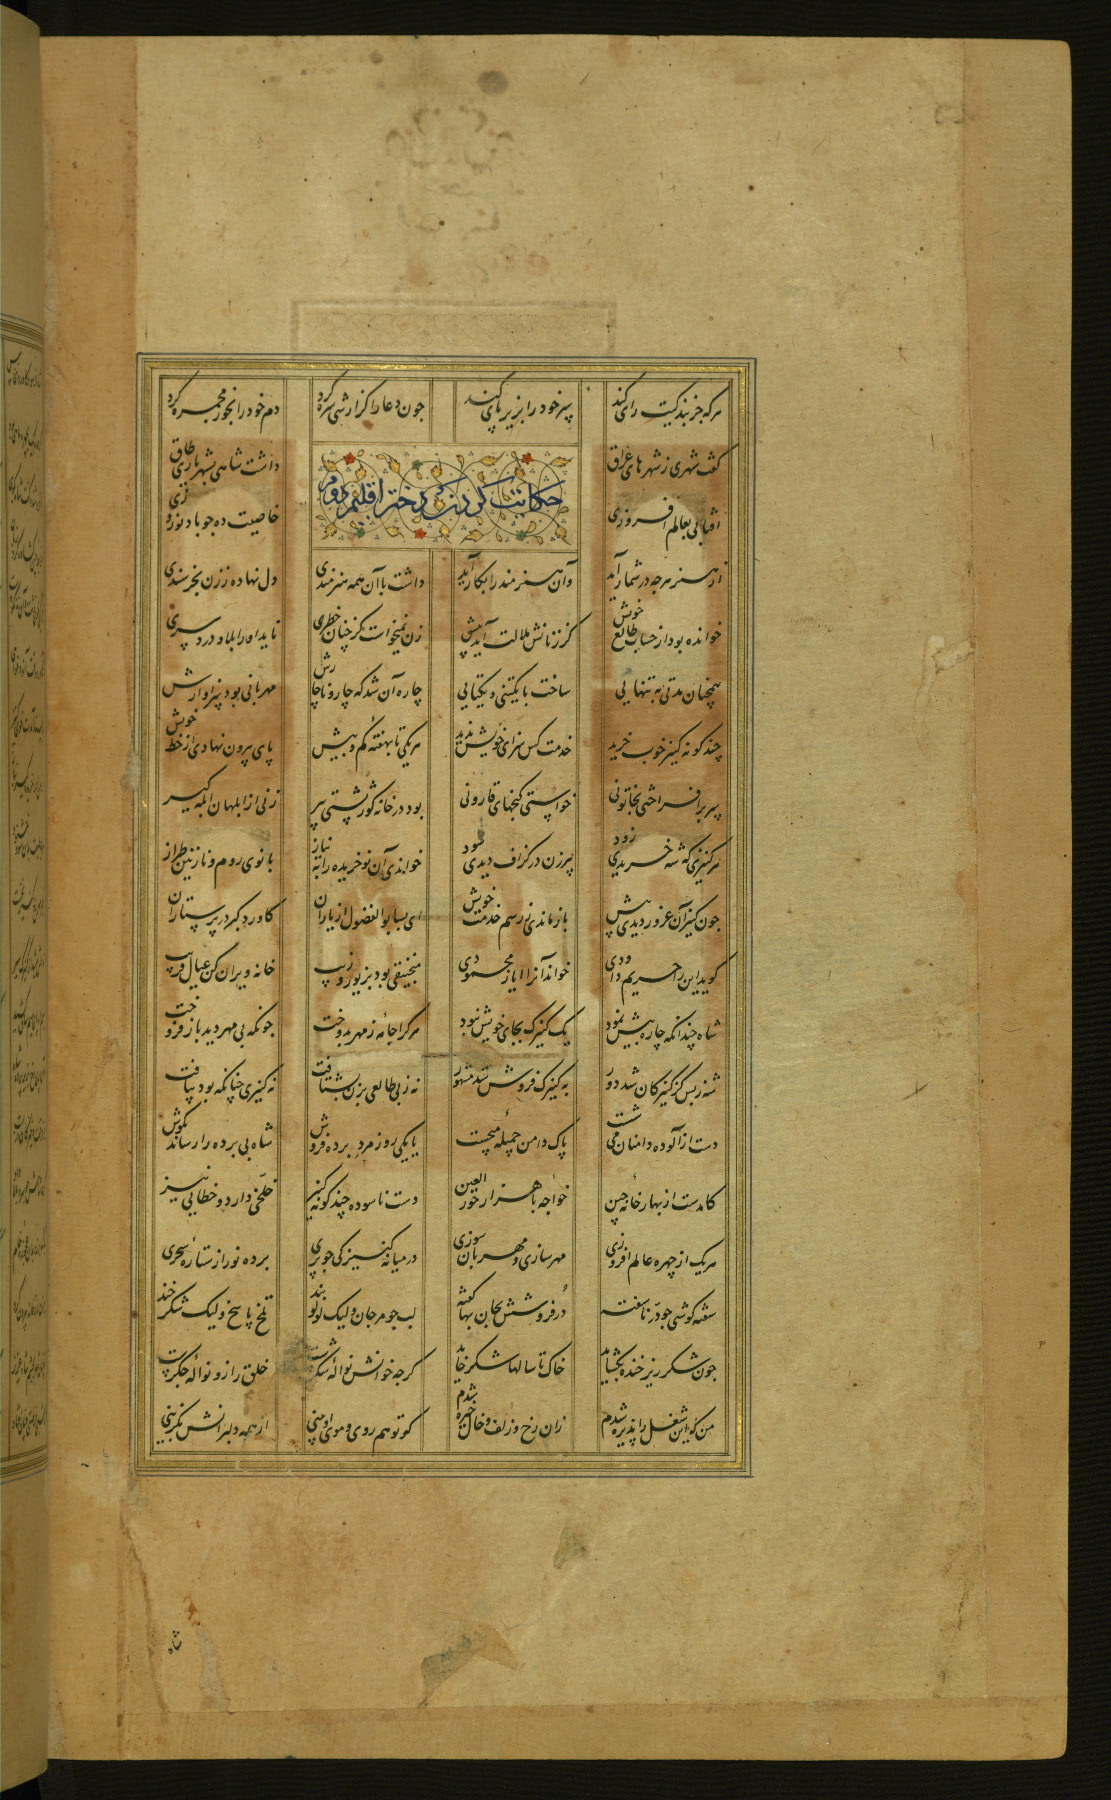 هرکه جز بندگیت رای کند سر خود را بزیر پای کند چون دعا را گزارشی سره کرد دم خود را بخور مجمره کرد
حکایت کردن دختر اقلیم روم
گفت شهری ز شهرهای عراق داشت شاهی بشهریاری طاق
آفتابی بعالم افروزی خاصیت ده چو باد نوروزی
از هنر هرچه در شمار آید وان هنرمند را بکار آید داشت با آن همه هنرمندی دل نهاده ز زن بخرسندی
خوانده بود از حساب طالع خویش کز زنانش ملالت آید پیش زن نمیخواست کز چنان خطری ناید او را بلا و درد سری
همچنان مدتی به تنهایی ساخت با یکتنی و یکتایی چاره آن شد که چار و ناچارش مهربانی بود سزاوارش
چند گونه کنیز خوب خرید خدمت کس سزای خویش ندید هر یکی تا بهفته کم و بیش پای بیرون نهادی از خط خویش
سر بر افراختی بخاتونی خواستی گنجهای قارونی بود در خانه گوژپشتی پیر زنی از ابلهان ابله گیر
هر کنیزی که شه خریدی زود پیرزن در گزاف دیدی سود خواندی آن نو خریده را به نیاز بانوی روم و نازنین طراز
چون کنیز آن غرور دیدی پیش باز ماندی ز رسم خدمت خویش ای بسا بوالفضول از یاران کاورد کبر در پرستاران
گوید این را حریم داودی خواند آنرا ایاز محمودی منجنیقی بود بزیور و زیب خانه ویران کن عیال فریب
شاه چندانکه چاره بیش نمود یک کنیزک بجای خویش نبود هر کرا جامه ز مهر بدوخت چونکه بی مهر دید باز فروخت
شه ز بس کز کنیزکان شد دور به کنیزک فروش شد مشهور نه ز بی طالعی بزن بشتافت نه کنیزی چنانکه بود بیافت
دست از آلوده دامنان می شست پاک دامن جمیلهٔ میجست تا یکی روز مرد برده فروش شاه بی برده را رساند بگوش
کامدست از بهار خانهٔ چین خواجه با هزار حور العین دست ناسوده چند گونه کنیز خلخی دارد و خطایی نیز
هر یک از چهره عالم افروزی مهر سازی و مهربان سوزی در میانه کنیزکی چو پری برده نور از ستارهٔ سحری
سفته گوشی چو در ناسفته در فروشش بجان بها گفته لب چو مرجان ولیک لولو بند تلخ پاسخ ولیک شکر خند
چون شکر ریز خنده بگشاید خاک تا سالها شکر خاید گرچه خوانش نوالهٔ شکرست خلق را زو نوالهٔ جگرست
من که این شغل را پذیره شدم زان رخ و زلف و خال خیره شدم گر تو هم روی و موی او بینی از همه دلبرانش بگزینی
شاه